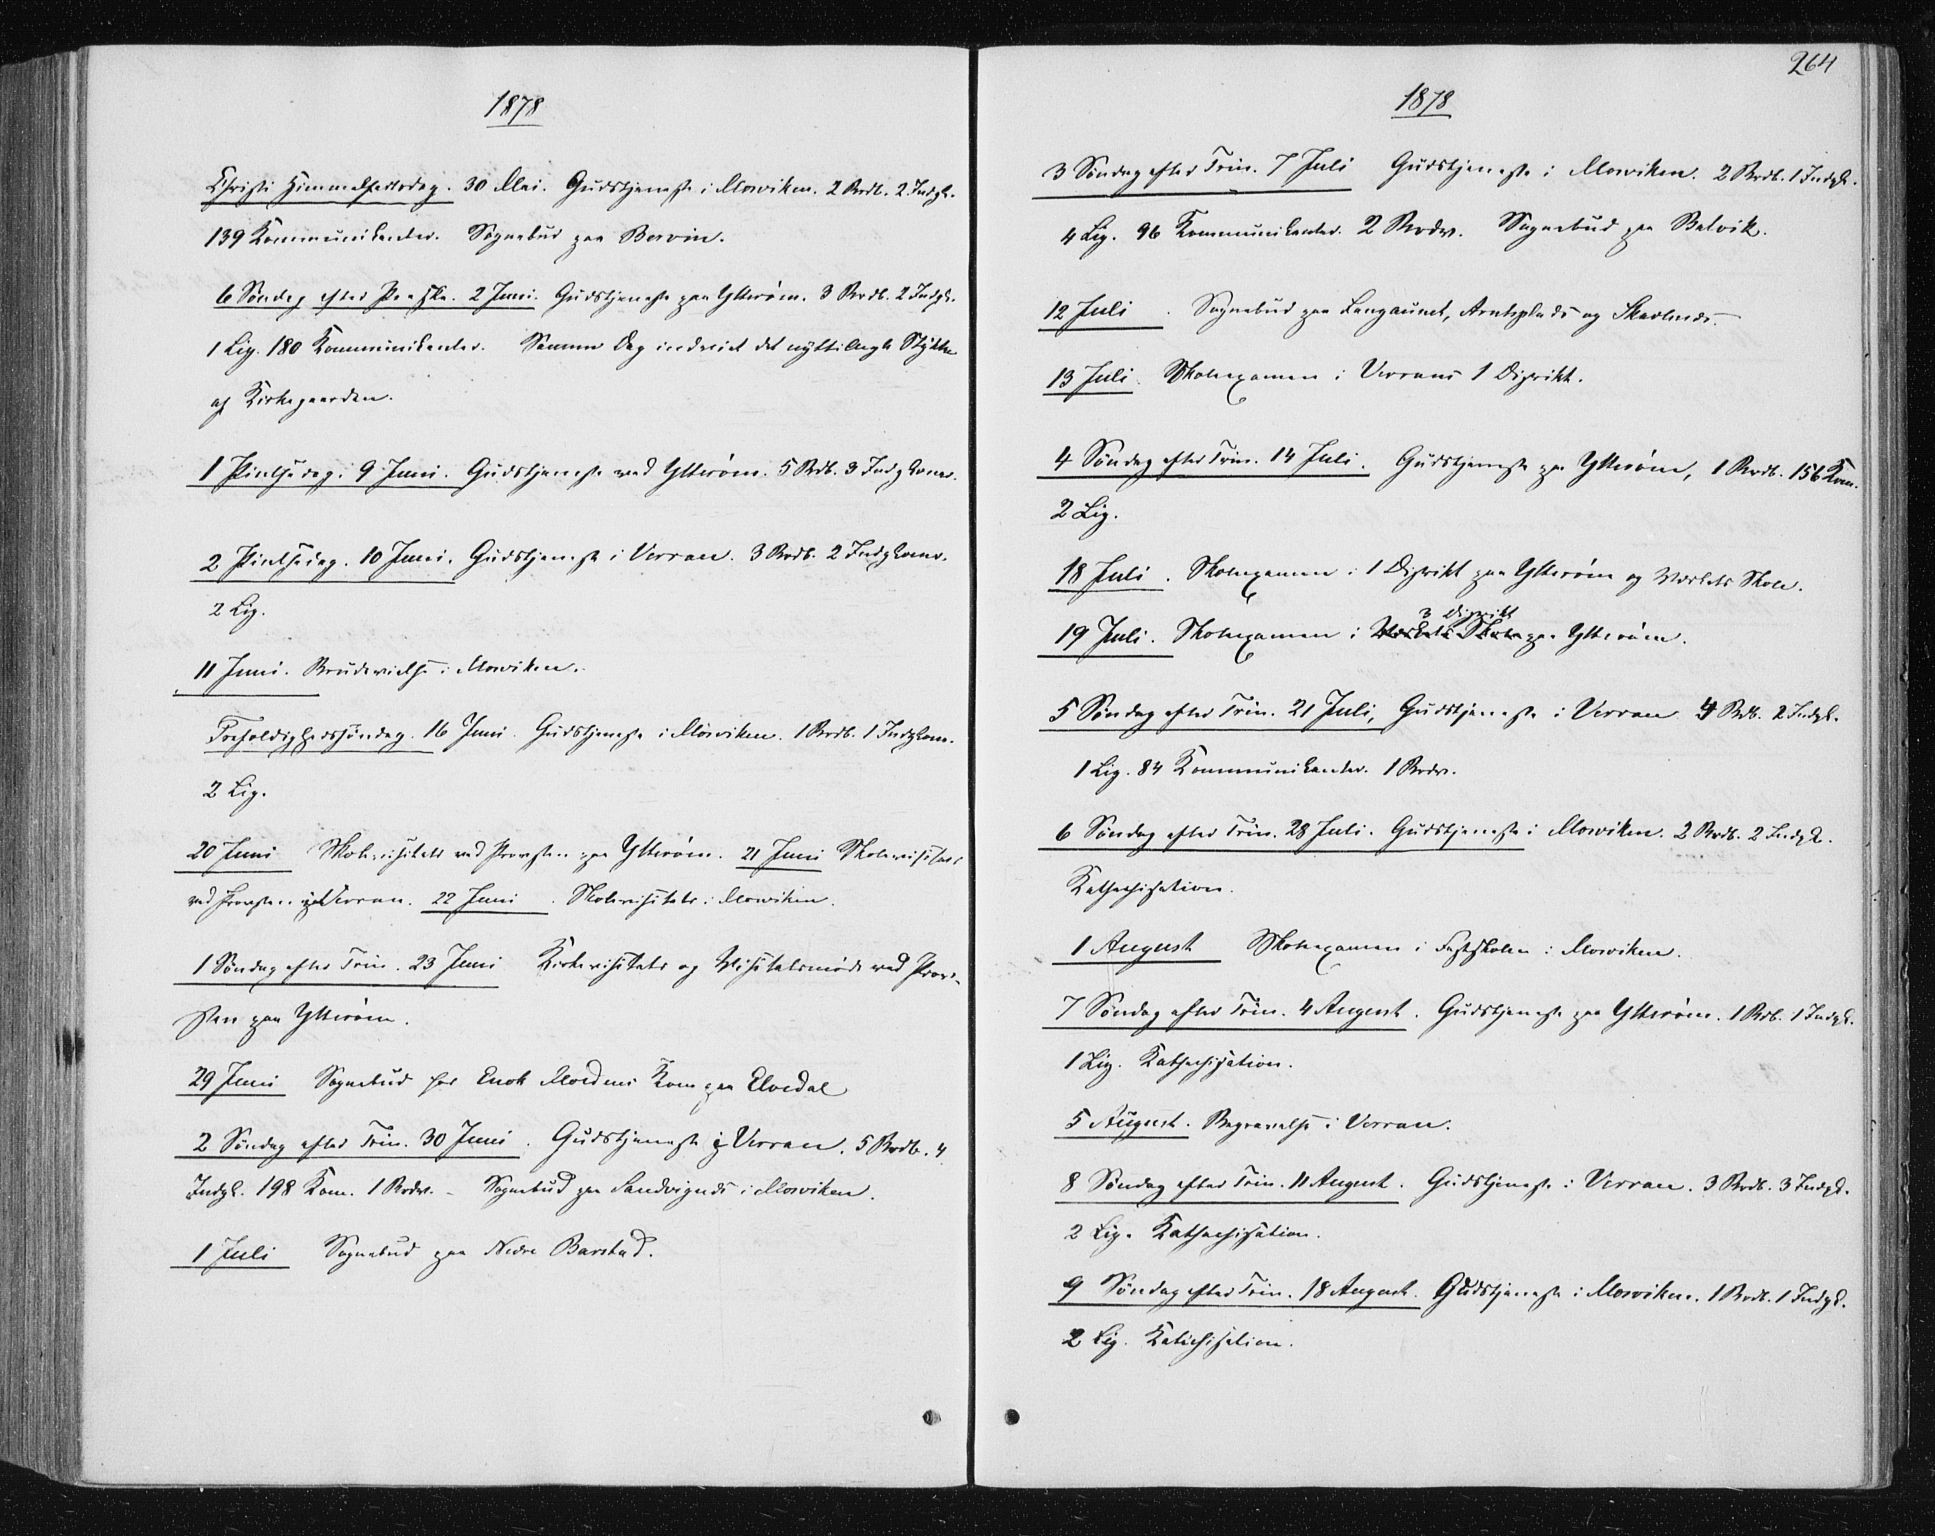 1878
Christi Himmelfartsdag. 30 Mai. Gudstjeneste i Mosviken. 2 Brdb. 2 Indgk.
139 Kommunikanter. Sognebud paa
6 Søndag efter Paaske. 2 Juni. Gudstjeneste paa Ytterøen. 3 Brdb. 2 Indgk.
1 Lig. 180 Kommunikanter. Samme Dag indviet det nyttillagte Stykke
af Kirkegaarden.
1 Pintsedag. 9 Juni. Gudstjeneste ved Ytterøen. 5 Brdb. 3 Indgkoner.
2 Pintsedag. 10 Juni. Gudstjeneste i Verran. 3 Brdb. 2 Indgkoner.
2 Lig.
11 Juni. Brudevielse i Mosviken.
Trefoldighedssøndag. 16 Juni. Gudstjeneste i Mosviken. 1 Brdb. 1 Indgkone.
2 Lig.
20 Juni Skolevisitats ved Provsten paa Ytterøen. 21 Juni Skolevisitats
ved Provsten i Verran. 22 Juni. Skolevisitats i Mosviken.
1 Søndag efter Trin. 23 Juni Kirkevisitats og Visitatsmøde ved Prov-
sten paa Ytterøen.
29 Juni Sognebud hos Enok Kone paa
2 Søndag efter Trin. 30 Juni. Gudstjeneste i Verran. 5 Brdb. 4
Indgk. 198 Kom. 1 Brdv. – Sognebud paa i Mosviken.
1 Juli Sognebud paa Nedre Barstad.
264
1878
3 Søndag efter Trin. 7 Juli Gudstjeneste i Mosviken. 2 Brdb. 1 Indgk.
4 Lig. 96 Kommunikanter. 2 Brdv. Sognebud paa
12 Juli. Sognebud paa Langaunet, og
13 Juli. Skoleexamen i Verrans 1 Distrikt.
4 Søndag efter Trin. 14 Juli. Gudstjeneste paa Ytterøen, 1 Brdb. 156 Kom.
2 Lig.
18 Juli. Skoleexamen i 1 Distrikt paa Ytterøen og Værkets Skole.
3 Distrikt
19 Juli. Skoleexamen i Værkets Skole paa Ytterøen.
5 Søndag efter Trin. 21 Juli, Gudstjeneste i Verran 4 Brdb. 2 Indgk.
1 Lig. 84 Kommunikanter. 1 Brdv.
6 Søndag efter Trin. 28 Juli. Gudstjeneste i Mosviken. 2 Brdb. 2 Indgk.
Kathechisation.
1 August Skoleexamen i Fastskolen i Mosviken.
7 Søndag efter Trin. 4 August. Gudstjeneste paa Ytterøen. 1 Brdb. 1 Indgk.
1 Lig. Kathechisation.
5 August. Begravelse i Verran.
8 Søndag efter Trin. 11 August. Gudstjeneste i Verran. 3 Brdb. 3 Indgk.
2 Lig. Kathechisation.
9 Søndag efter Trin. 18 August. Gudstjeneste i Mosviken. 1 Brdb. 1 Indgk.
2 Lig. Katechisation.